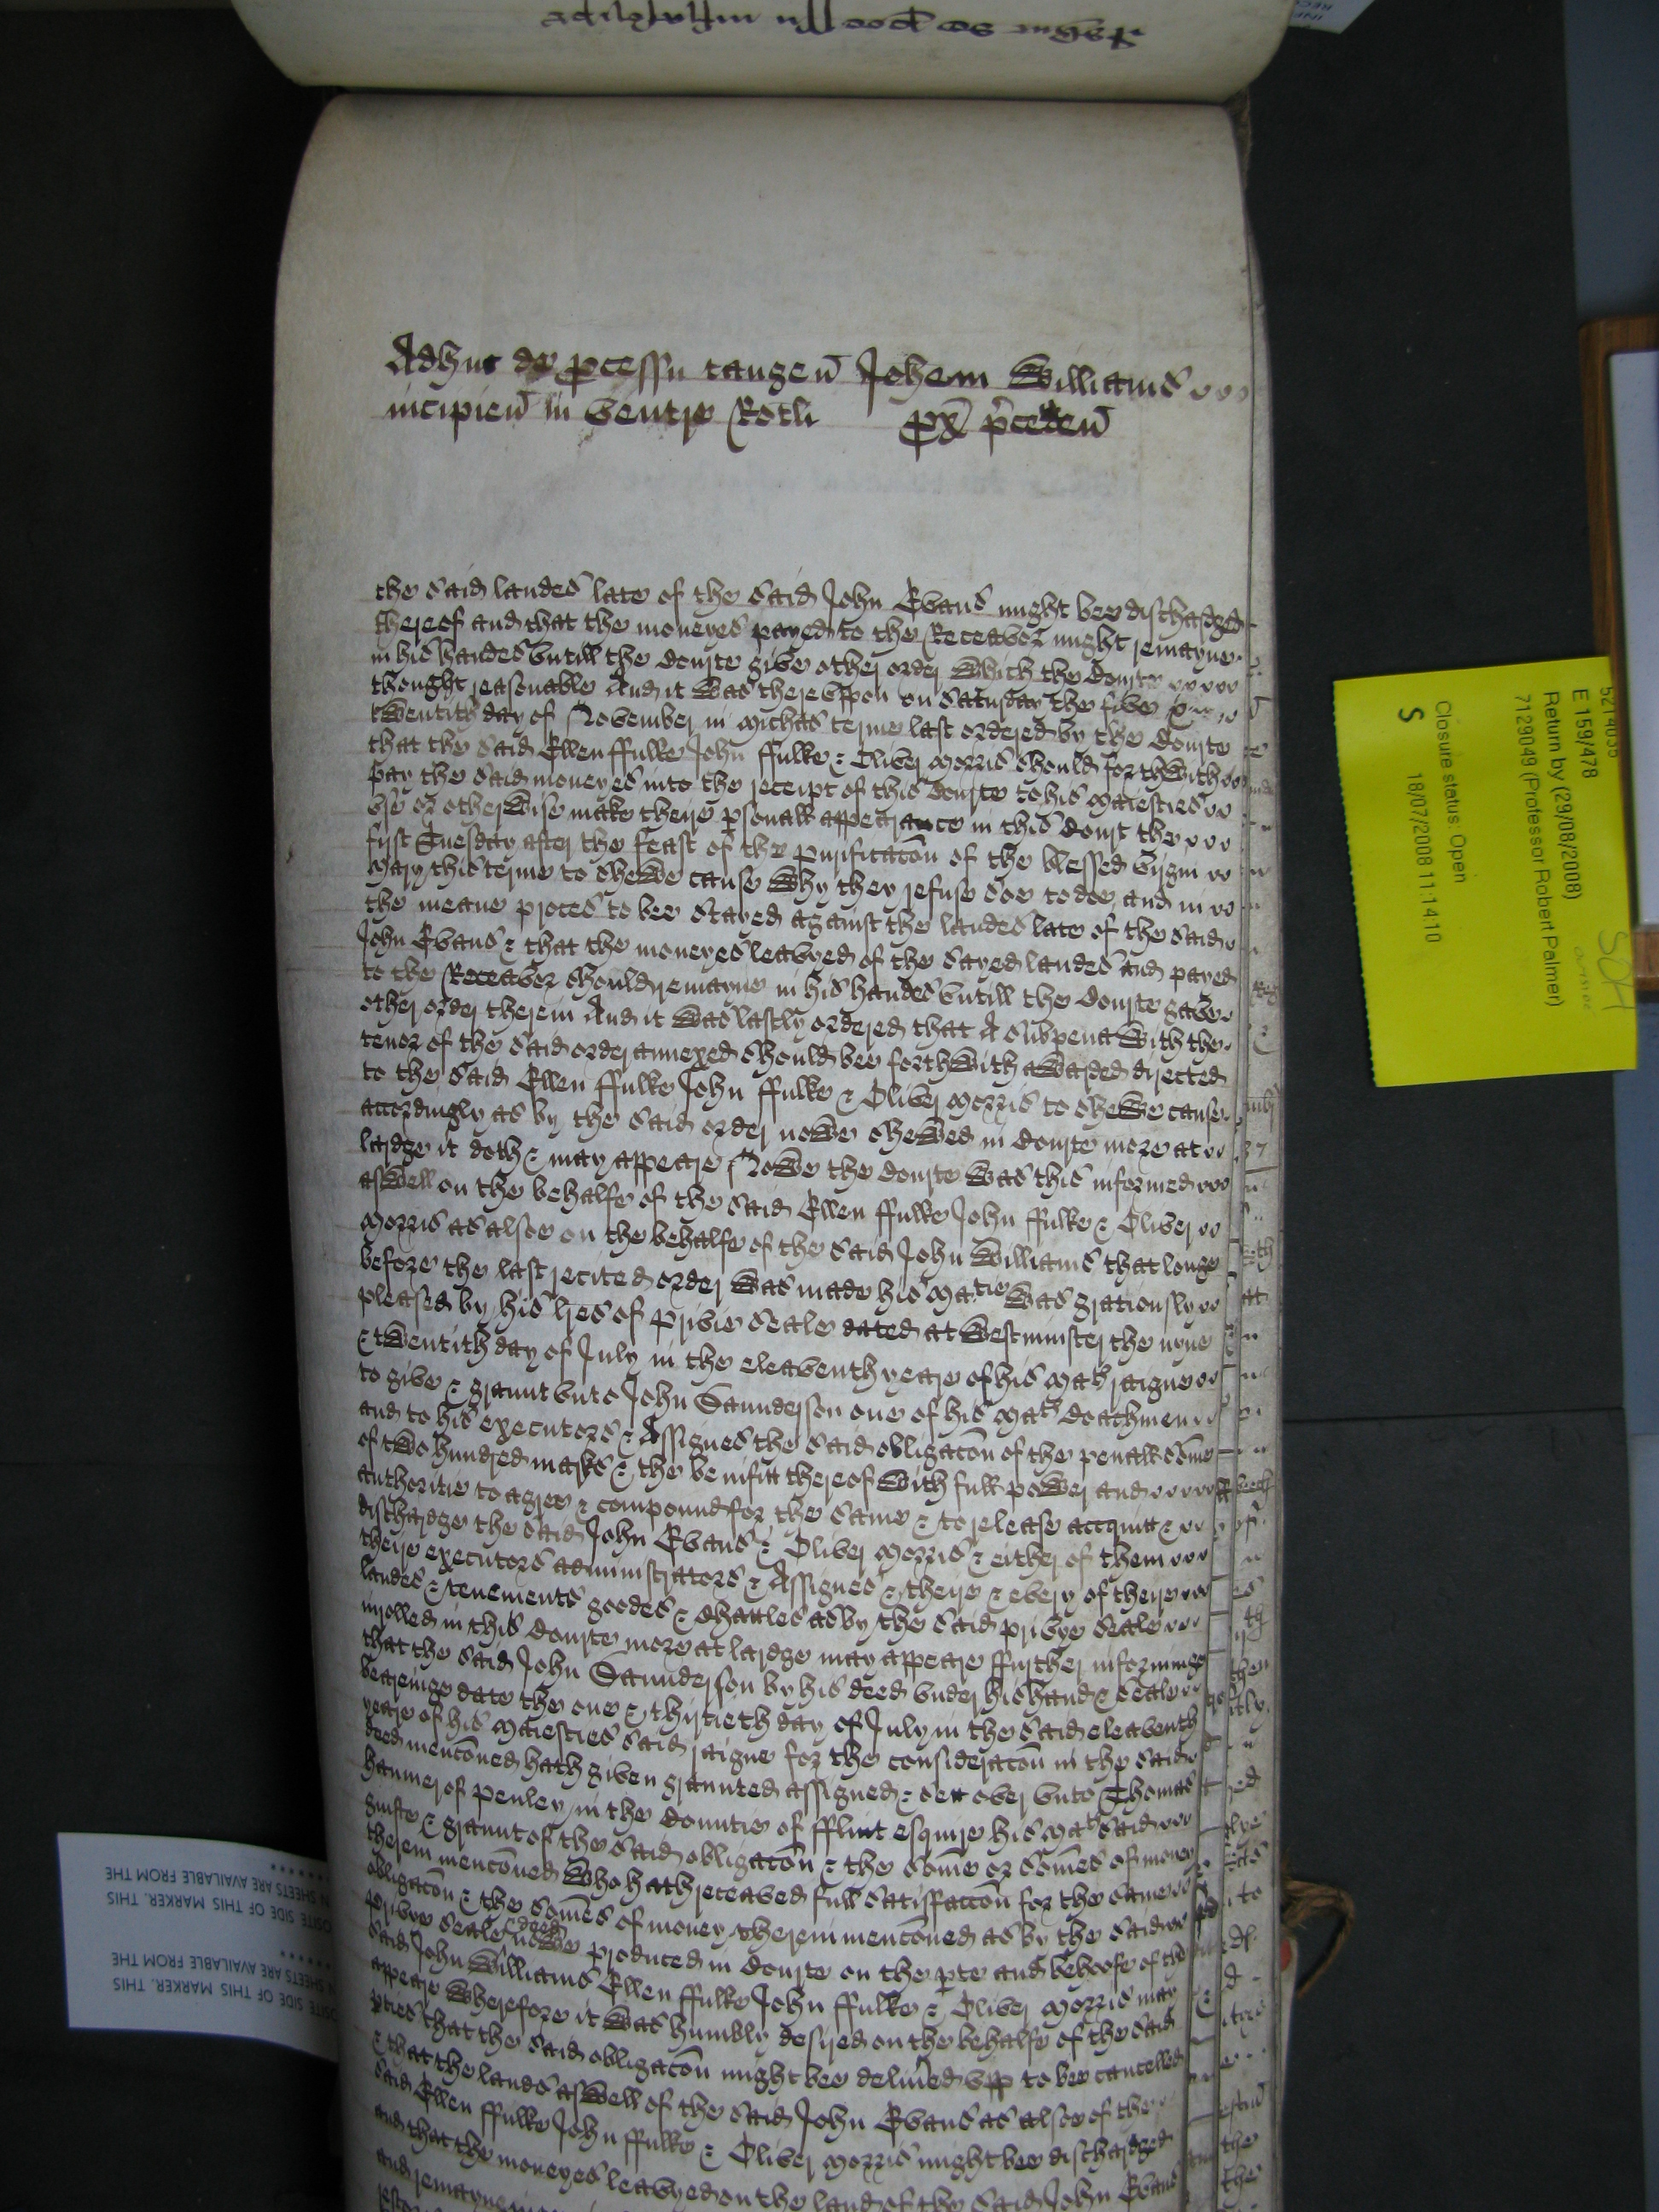 Adhuc de pcessu tangen Johem Williams
incipien in ventre Rotli px pceden
the said landes late of the said John Evans might bee dischardged
thereof and that the moneyes payed to the Receavor might remayne
in his handes untill the Courte give other order Which the Courte
thought reasonable And it was thereuppon on Saturday the five &
twentith day of November in Michas terme last ordered by the Courte
that the said Ellen ffulke John ffulke & Oliver Morris should forthwith
pay the said moneyes into the receipt of this Courte to his Maiesties
use or otherwise make theire psonall appearance in this Court the
first Tuesday after the feast of the purificacon of the blessed virgin
Mary this terme to shewe cause why they refuse soe to doe and in
the meane proces to bee stayed against the landes late of the said
John Evans & that the moneyes leavyed of the sayed landes and payed
to the Receavor should remayne in his handes untill the Courte gave
other order therein And it was lastly ordered that A subpena with the
tenor of the said order annexed should bee forthwith awarded directed
to the said Ellen ffulke John ffulke & Oliver Morris to shewe cause
accordingly as by the said order nowe shewed in Courte more at
lardge it doth & may appeare Nowe the Courte was this informed
aswell on the behalfe of the said Ellen ffulke John ffulke & Oliver
Morris as alsoe on the behalfe of the said John Williams that longe
before the last recited order was made his Matie was gratiously
pleased by his lres of privie seale dated at Westminster the nyne
& twentith day of July in the eleaventh yeare of his Mats raigne
to give & graunt unto John Saunderson one of his Mats Coachmen
and to his executors & Assignes the said obligacon of the penall some
of two hundred marks & the benifitt thereof with full power and
authoritie to agree & compound for the same & to release accquitt &
dischardge the said John Evans & Oliver Morris & either of them
theire executors administrators & Assignes & theire & every of theire
landes & tenements goodes & Chattles as by the said privye seale
inrolled in this Courte more at lardge may appeare ffurther informinge
that the said John Saunderson by his deed under his hand & seale
beareinge date the one & thirtieth day of July in the said eleaventh
yeare of his Maiesties said raigne for the consideracon in the said
deed menconed hath given graunted assigned & sett over unto Thomas
hanmer of penley in the Countie of fflint esquire his Mats said
guifte & graunt of the said obligacon & the some or somes of money
therein menconed Who hath receaved full satisfaccon for the same
obligacon & the somes of money therein menconed as by the said
privye seale & deed nowe produced in Courte on the pte and behoofe of the
said John Williams Ellen ffulke John ffulke & Oliver Morris may
appeare Wherefore it was humbly desired on the behalfe of the said
pties that the said obligacon might bee delived upp to bee cancelled
& that the lands aswell of the said John Evans as alsoe of the
said Ellen ffulke John ffulke & Oliver Morris might bee dischardged
and that the moneyes leavyed on the land of the said John Evans
and remayneinge
5214035
E 159/478
Return by (29/08/2008)
7129049 (Professor Robert Palmer)
Closure status: Open
18/07/2008 11:14:10
S
SITE SIDE OF THIS MARKER. THIS
N SHEETS ARE AVAILABLE FROM THE
OSITE SIDE OF THIS MARKER. THIS
N SHEETS ARE AVAILABLE FROM THE